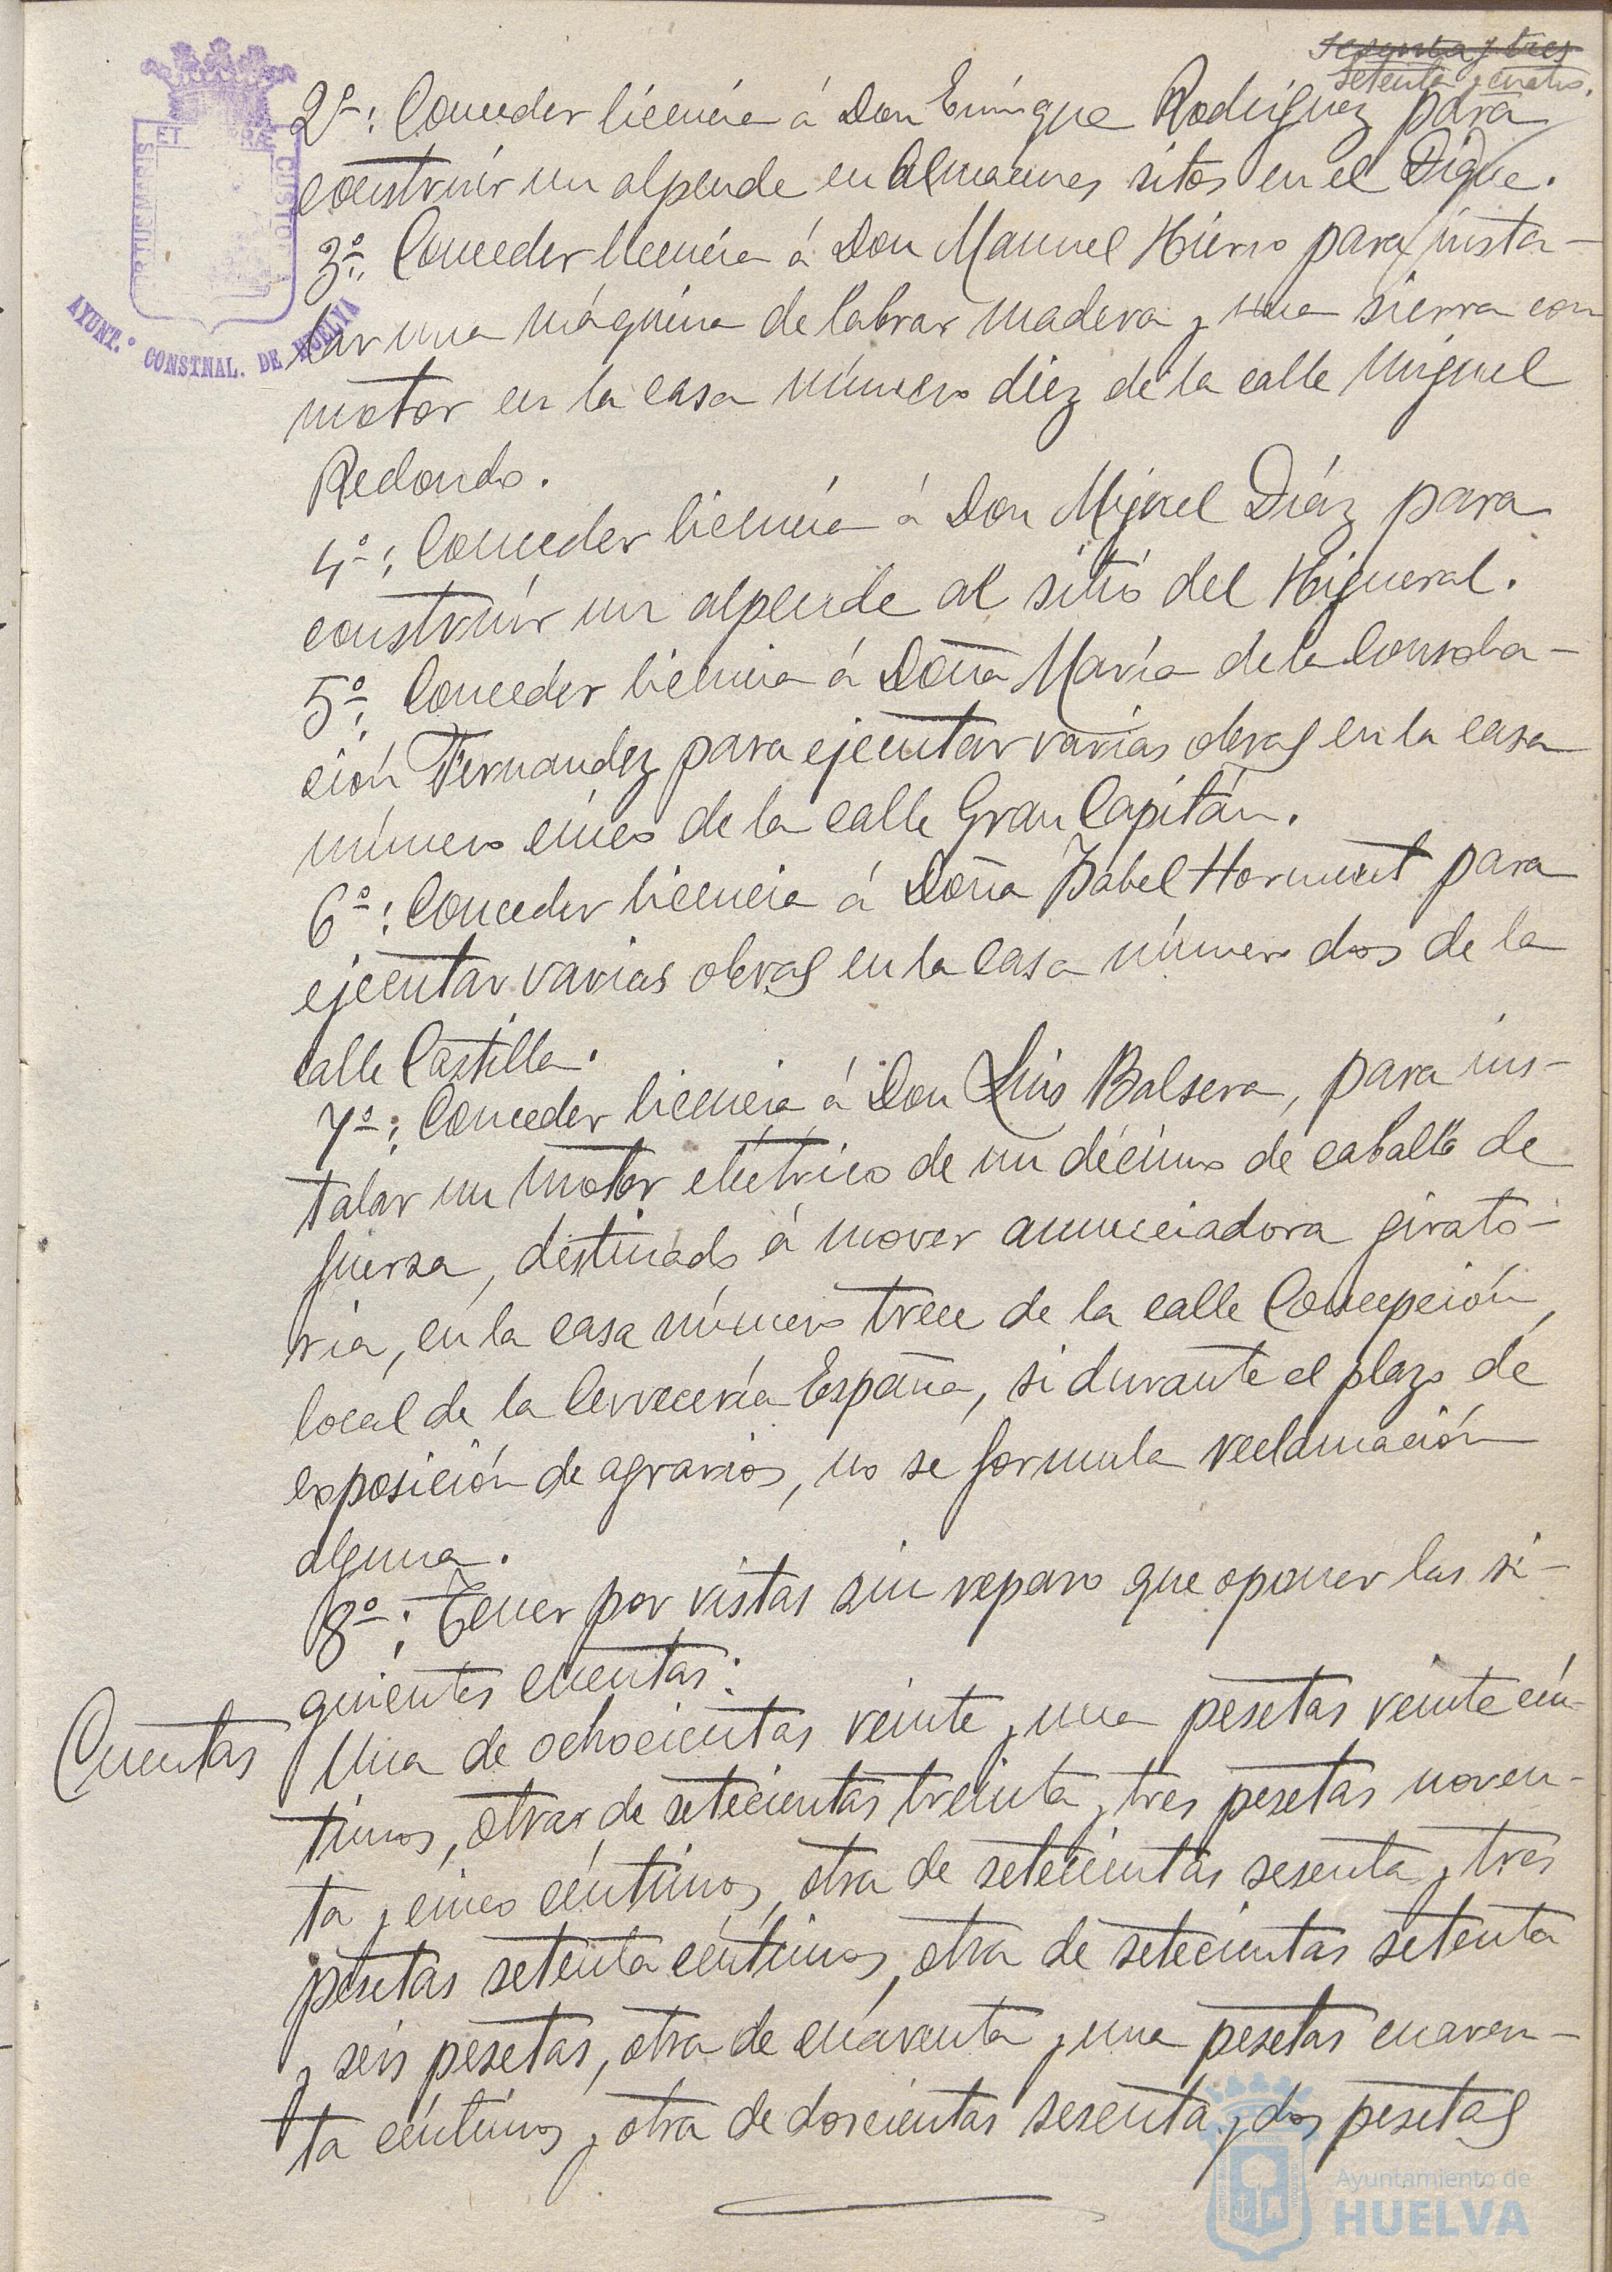 sesenta y tres
setenta y cuatro.
2º: Conceder licencia á Don Enrique Rodriguez para
construir un alpende en Almacenes sitos en el Dique.
3º: Conceder licencia á Don Manuel Hierro para insta-
lar una máquina de labrar madera y una sierra con
motor en la casa número diez de la calle Miguel
Redondo.
4º: Conceder licencia á Don Miguel Diáz para
construir un alpende al sitio del Higueral.
5º: Conceder licencia á Doña María de la Consola-
ción Fernandez para ejecutar varias obras en la casa
número cinco de la calle Gran Capitán.
6º: Conceder licencia á Doña Isabel Horment para
ejecutar varias obras en la casa número dos de la
calle Castilla.
7º: Conceder licencia á Don Luis Balsera, para ins-
talar un motor eléctrico de un décimo de caballo de
fuerza, destinado á mover anunciadora girato-
ria, en la casa número trece de la calle Concepción,
local de la Cervecería España, si durante el plazo de
exposición de agravios, no se formula reclamación
alguna.
8º: Tener por vistas sin reparo que oponer las si-
guientes cuentas:
Cuentas
Una de ochocientas veinte y una pesetas veinte cén-
timos, otra de setecientas treinta y tres pesetas noven-
ta y cinco céntimos, otra de setecientas sesenta y tres
pesetas setenta céntimos, otra de setecientas setenta
y seis pesetas, otra de cuarenta y una pesetas cuaren-
ta céntimos y otra de doscientas sesenta y dos pesetas
AYUNT.º CONSTNAL. DE HUELVA
Ayuntamiento de
HUELVA